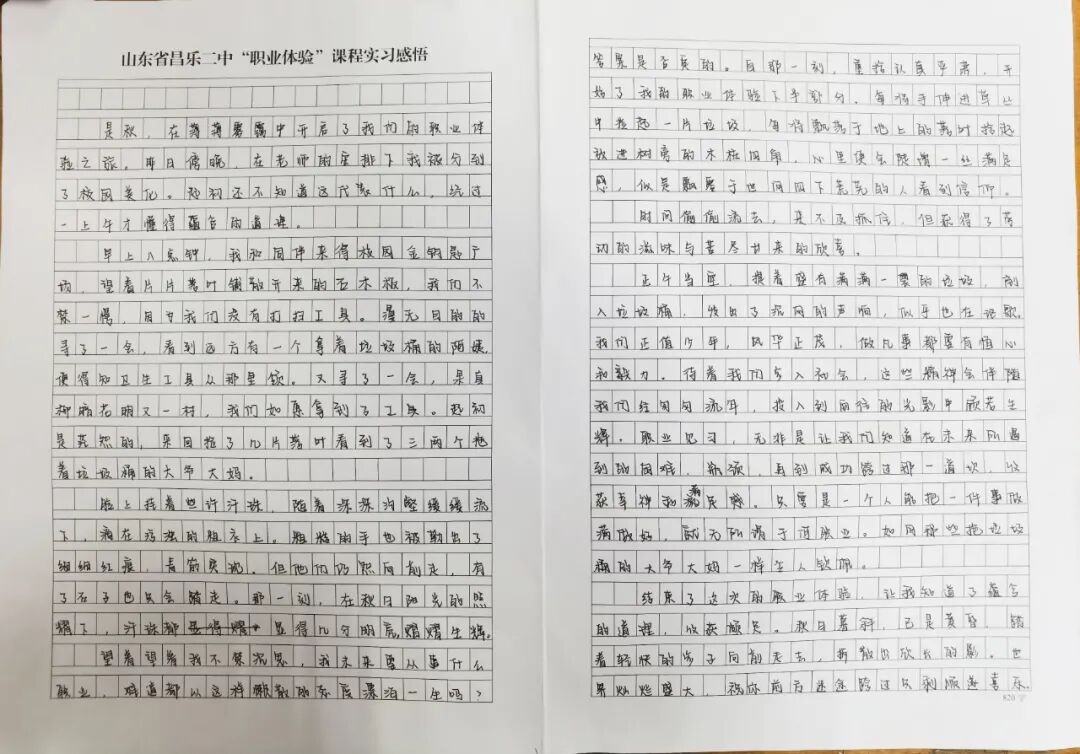 山东省昌乐二中“职业体验”课程实习感悟
是秋,在薄薄雾霭中开启了我们的职业体
验之旅。昨日傍晚,在老师的安排下我被分到
了校园美化。起初还不知道这代表什么,经过
一上午才懂得蕴含的道理。
早上八点钟,我和同伴来得校园金钥匙广
场,望着片片落叶铺散开来的石木板,我们不
禁一愣,因为我们没有打扫工具。漫无目的的
寻了一会,看到远方有一个拿着垃圾桶的阿姨,
便得知卫生工具从那里领。又寻了一会,果真
柳暗花明又一村,我们如愿拿到了工具。起初
是茫然的,来回捡了几片落叶看到了三两个拖
着垃圾桶的大爷大妈。
脸上挂着些许汗珠,随着深深沟壑缓缓流
下,滴在污浊的粗衣上。粗糙的手也被勒出了
细细红痕,青筋突起。但他们仍然向前走,有
了石子也只会踏走。那一刻,在秋日阳光的照
耀下,汗珠都显得几分的熠熠生辉。
望着望着我不禁沉思,我未来要从事什么
职业,难道都以这样懒散的态度漂泊一生吗?
答案是否定的。自那一刻,重拾认真严肃,开
始了我的职业体验下半部分。每将手伸进草丛
中捡起一片垃圾,每将飘落于地上的落叶拾起
放进树旁的木板四角,心里便会陡增一丝满足
感,似是飘零于世间四下茫茫的人看到信仰。
时间偷偷流去,来不及抓住,但获得了劳
动的滋味与苦尽甘来的欣喜。
正午当空,提着盛有满满一袋的垃圾,倒
入垃圾桶,发出了沉闷的声响,似乎也在讴歌。
我们正值少年,风华正茂,做凡事都要有恒心
和毅力。待着我们步入社会,这些精神会伴随
我们经匆匆流年,投入到向往的光影中顾若生
辉。职业见习,无非是让我们知道在未来所遇
到的困难,瓶颈,再到成功跨过那一道坎,收
获幸福和满足感。只要是一个人能把一件事做
满做好,就无所谓于何职业。如同那些拖垃圾
桶的大爷大妈一样令人钦佩。
结束了这次的职业体验,让我知道了蕴含
的道理,收获颇足。秋日落斜,已是黄昏,踏
着轻快的步子向前走去,拆散出欣长的影。也
算灿烂盛大,祝你前方迷途跨过只剩顺遂喜乐。
820 字